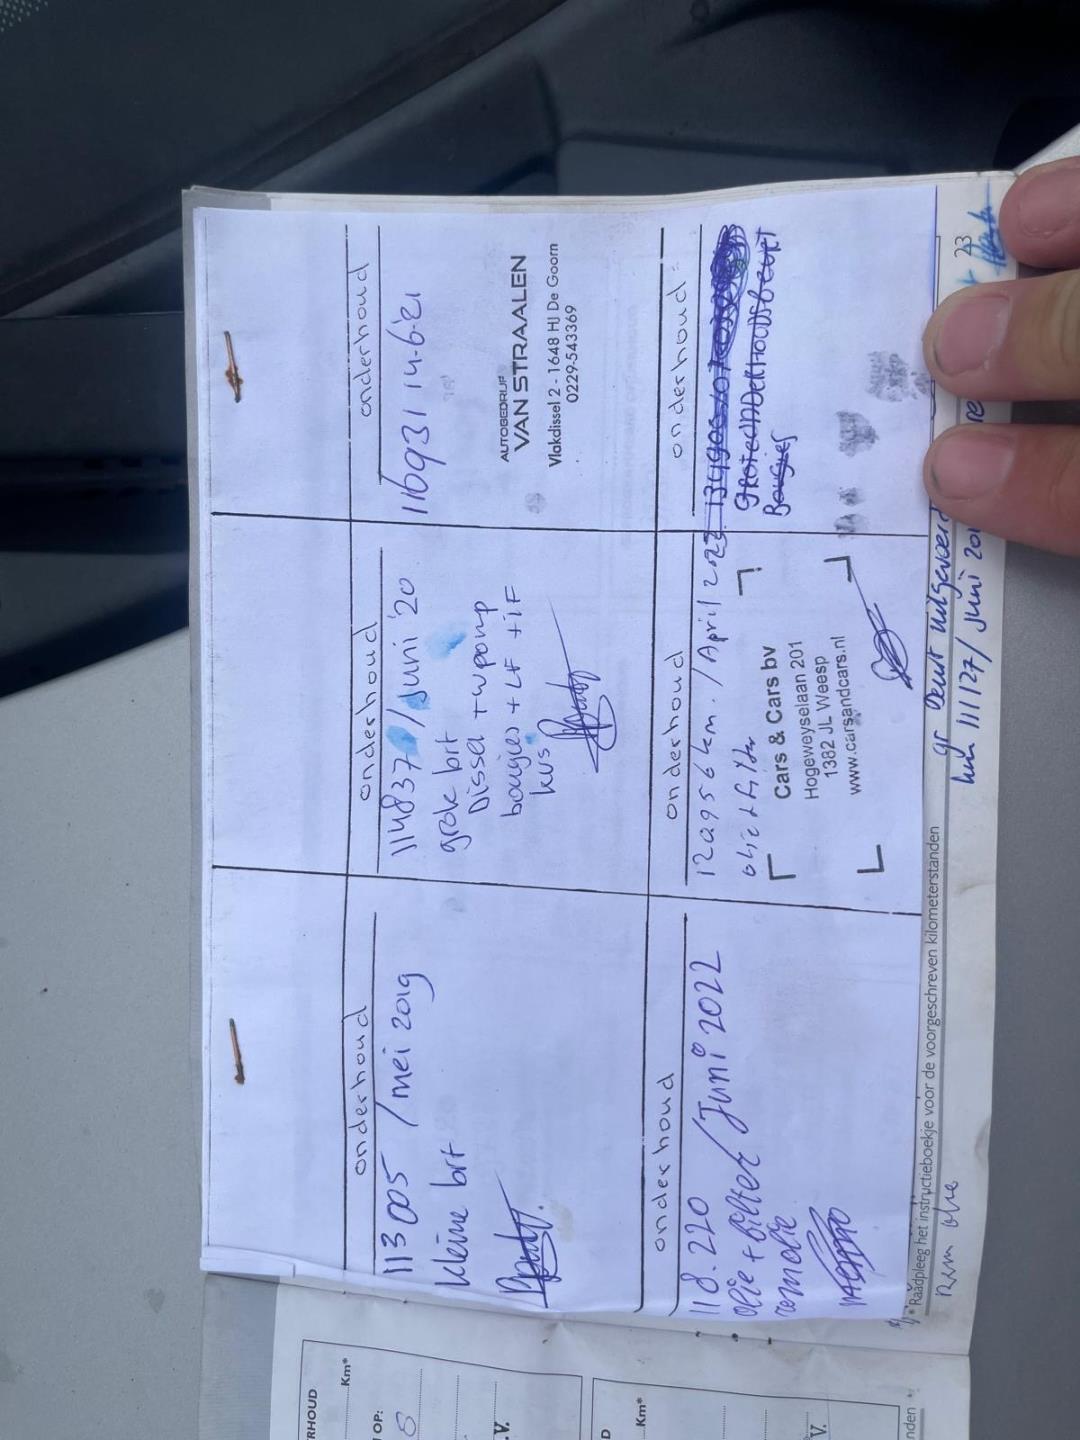 onderhoud
113 005 / mei 2019
kleine brt
onderhoud
114837 / juni '20
grote brt
Dissel + w pomp
bougies + LF + iF
kvs
onderhoud
116931 14-6-'21
AUTOBEDRIJF
VAN STRAALEN
Vlakdissel 2 - 1648 HJ De Goorn
0229-543369
onderhoud
118.270 / Juni 2022
olie + filter
remolie
onderhoud
120956 km. / April 2023
olie + filter
Cars & Cars bv
Hogeweyselaan 201
1382 JL Weesp
www.carsandcars.nl
onderhoud
Bougies
* Raadpleeg het instructieboekje voor de voorgeschreven kilometerstanden
23
gr Beurt uitgevoerd
km 111127 / juni 201
Rem olie
RHOUD
Km*
OP:
8
.V.
D
Km*
V.
nden